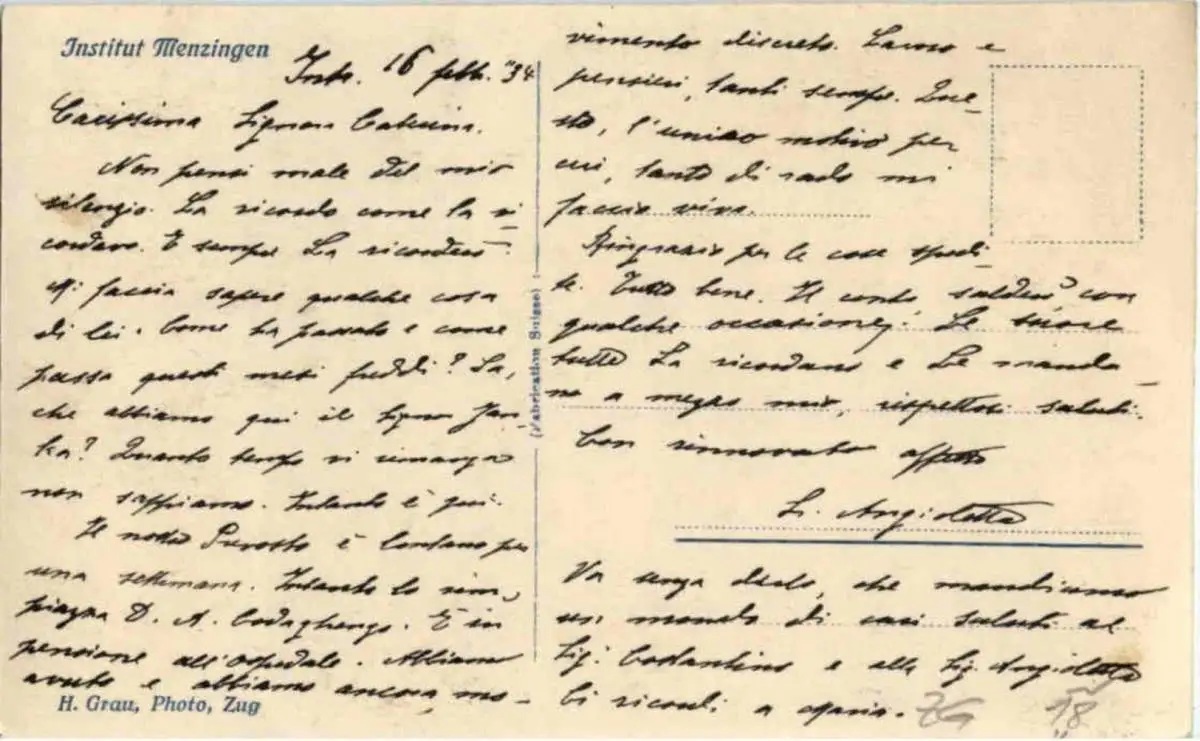 Institut Menzingen
16 febb. "34
Carissima Signora Caterina.
Non pensi male del mio
silenzio. La ricordo come la ri-
cordavo. E sempre La ricorderò.
Mi faccia sapere qualche cosa
di lei. Come ha passato e come
passa questi mesi freddi? Sa,
che abbiamo qui il Signor
? Quanto tempo vi rimarga
non sappiamo. Intanto è qui.
Il nostro Prevosto è lontano per
una settimana. Intanto lo rim-
piazza D. A. Codaghengo. È in
pensione all'ospedale. Abbiamo
avuto e abbiamo ancora, mo-
H. Grau, Photo, Zug
(Fabrication Suisse)
vimento discreto. Lavoro e
pensieri, tanti sempre. Que-
sto, l'unico motivo per
cui, tanto di rado mi
faccio viva.
Ringrazio per le cose spedi-
te. Tutto bene. Il conto salderò con
qualche occasione. Le suore
tutte La ricordano e Le manda-
no a mezzo mio, rispettosi saluti.
Con rinnovato affetto
Sr. Angioletta
Va senza dirlo, che mandiamo
un mondo di cari saluti al
Sig. Costantino e alla Sig. Angioletta
Ci ricordi a Maria. ZG 18